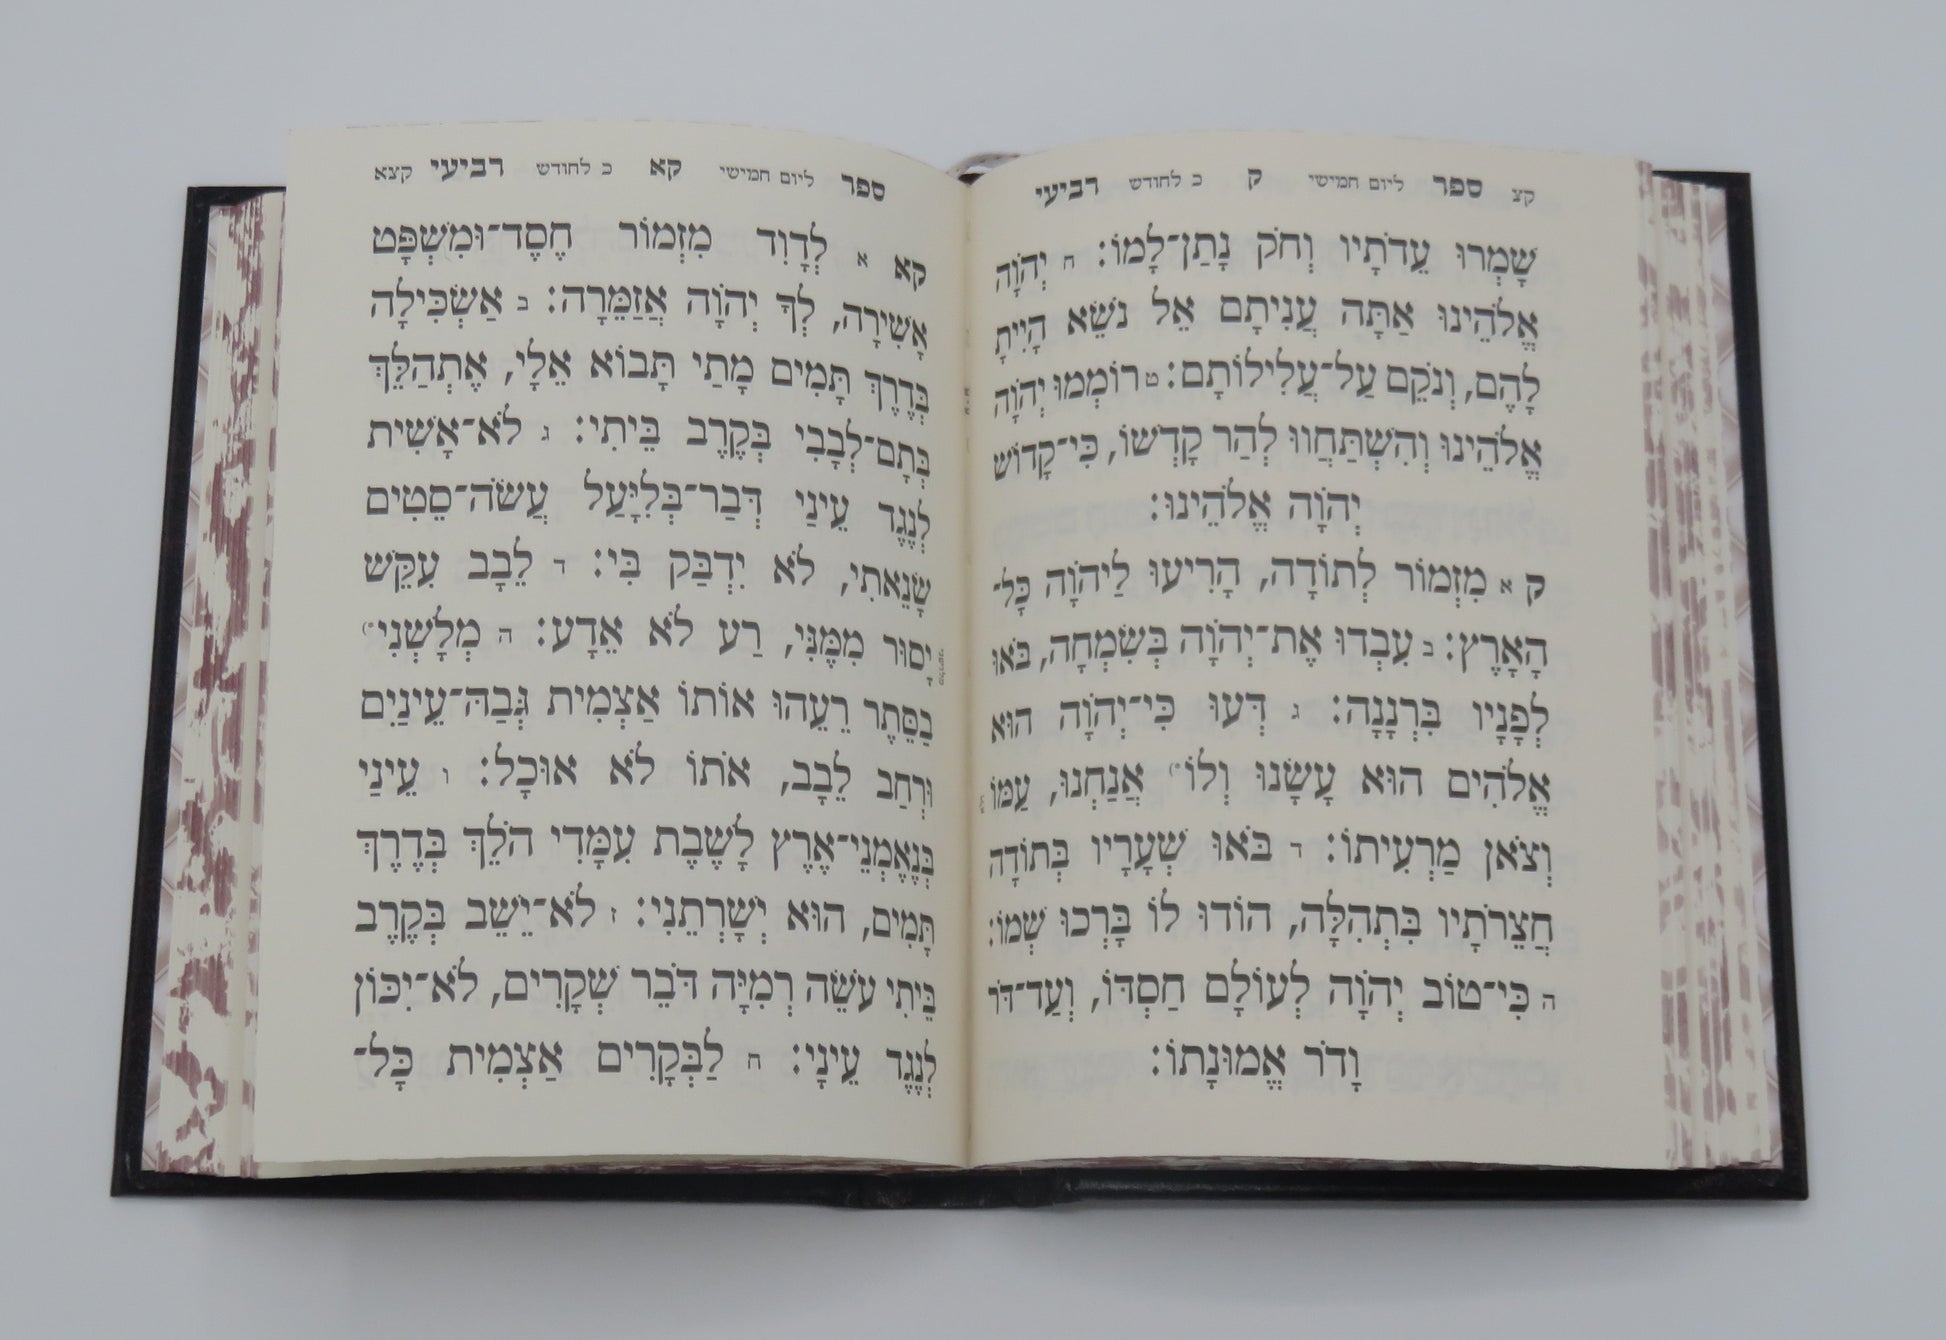 קצ ספר ליום חמישי ק כ לחודש רביעי
שָׁמְרוּ עֵדֹתָיו וְחֹק נָתַן־לָמוֹ: ח יְהֹוָה
אֱלֹהֵינוּ אַתָּה עֲנִיתָם אֵל נֹשֵׂא הָיִיתָ
לָהֶם, וְנֹקֵם עַל־עֲלִילוֹתָם: ט רוֹמְמוּ יְהֹוָה
אֱלֹהֵינוּ וְהִשְׁתַּחֲווּ לְהַר קָדְשׁוֹ, כִּי־קָדוֹשׁ
יְהֹוָה אֱלֹהֵינוּ:
ק א מִזְמוֹר לְתוֹדָה, הָרִיעוּ לַיהֹוָה כָּל־
הָאָרֶץ: ב עִבְדוּ אֶת־יְהֹוָה בְּשִׂמְחָה, בֹּאוּ
לְפָנָיו בִּרְנָנָה: ג דְּעוּ כִּי־יְהֹוָה הוּא
אֱלֹהִים הוּא עָשָׂנוּ וְלוֹ אֲנַחְנוּ, עַמּוֹ
וְצֹאן מַרְעִיתוֹ: ד בֹּאוּ שְׁעָרָיו בְּתוֹדָה
חֲצֵרֹתָיו בִּתְהִלָּה, הוֹדוּ לוֹ בָּרְכוּ שְׁמוֹ:
ה כִּי־טוֹב יְהֹוָה לְעוֹלָם חַסְדּוֹ, וְעַד־דֹּר
וָדֹר אֱמוּנָתוֹ:
ספר ליום חמישי קא כ לחודש רביעי קצא
קא א לְדָוִד מִזְמוֹר חֶסֶד־וּמִשְׁפָּט
אָשִׁירָה, לְךָ יְהֹוָה אֲזַמֵּרָה: ב אַשְׂכִּילָה
בְּדֶרֶךְ תָּמִים מָתַי תָּבוֹא אֵלָי, אֶתְהַלֵּךְ
בְּתָם־לְבָבִי בְּקֶרֶב בֵּיתִי: ג לֹא־אָשִׁית
לְנֶגֶד עֵינַי דְּבַר־בְּלִיָּעַל עֲשֹׂה־סֵטִים
שָׂנֵאתִי, לֹא יִדְבַּק בִּי: ד לֵבָב עִקֵּשׁ
יָסוּר מִמֶּנִּי, רַע לֹא אֵדָע: ה מְלָשְׁנִי־
בַסֵּתֶר רֵעֵהוּ אוֹתוֹ אַצְמִית גְּבַהּ־עֵינַיִם
וּרְחַב לֵבָב, אֹתוֹ לֹא אוּכָל: ו עֵינַי
בְּנֶאֶמְנֵי־אֶרֶץ לָשֶׁבֶת עִמָּדִי הֹלֵךְ בְּדֶרֶךְ
תָּמִים, הוּא יְשָׁרְתֵנִי: ז לֹא־יֵשֵׁב בְּקֶרֶב
בֵּיתִי עֹשֵׂה רְמִיָּה דֹּבֵר שְׁקָרִים, לֹא־יִכּוֹן
לְנֶגֶד עֵינָי: ח לַבְּקָרִים אַצְמִית כָּל־